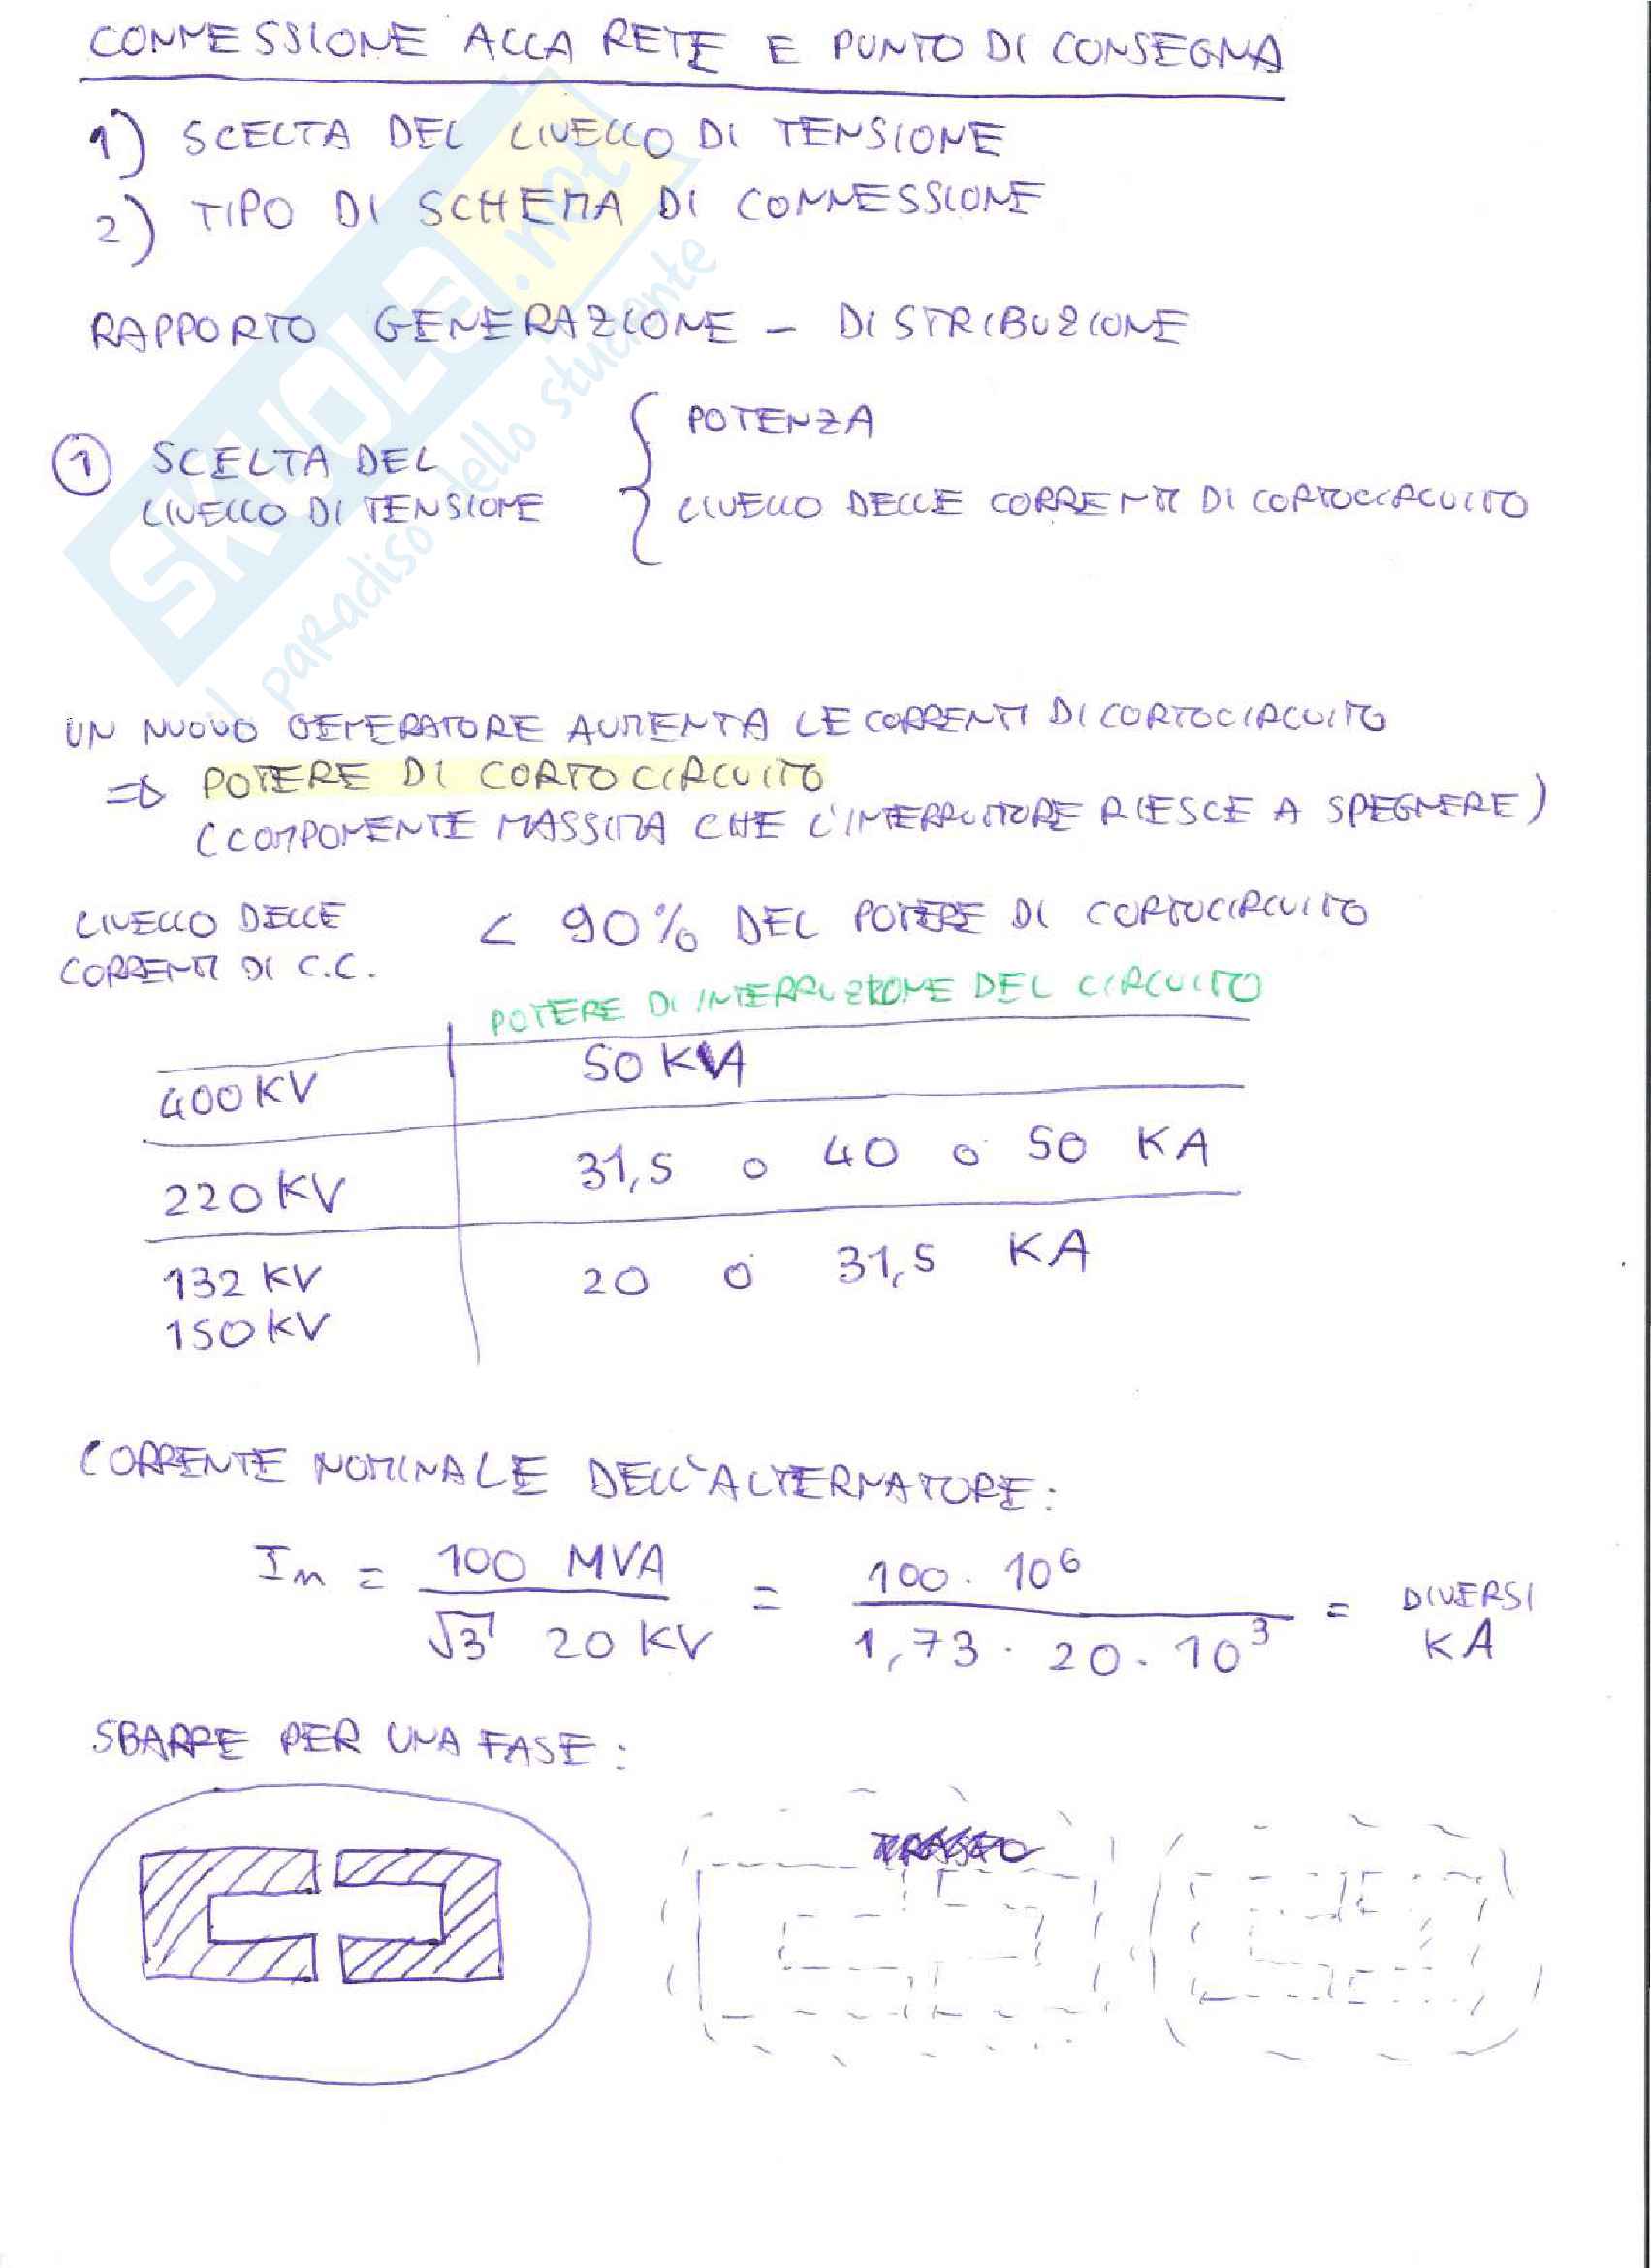 CONNESSIONE ALLA RETE E PUNTO DI CONSEGNA
1) SCELTA DEL LIVELLO DI TENSIONE
2) TIPO DI SCHEMA DI CONNESSIONE
RAPPORTO GENERAZIONE - DISTRIBUZIONE
1 SCELTA DEL LIVELLO DI TENSIONE { POTENZA
LIVELLO DELLE CORRENTI DI CORTOCIRCUITO
SKUOLA.net
il paradiso dello studente
UN NUOVO GENERATORE AUMENTA LE CORRENTI DI CORTOCIRCUITO
=> POTERE DI CORTO CIRCUITO
(COMPONENTE MASSIMA CHE L'INTERRUTTORE RIESCE A SPEGNERE)
LIVELLO DELLE CORRENTI DI C.C. < 90% DEL POTERE DI CORTOCIRCUITO
POTERE DI INTERRUZIONE DEL CIRCUITO
400 KV 50 KA
220 KV 31,5 o 40 o 50 KA
132 KV 20 o 31,5 KA
150 KV
CORRENTE NOMINALE DELL'ALTERNATORE:
In = 100 MVA / √3 20 KV = 100 · 10⁶ / 1,73 · 20 · 10³ = DIVERSI KA
SBARRE PER UNA FASE: